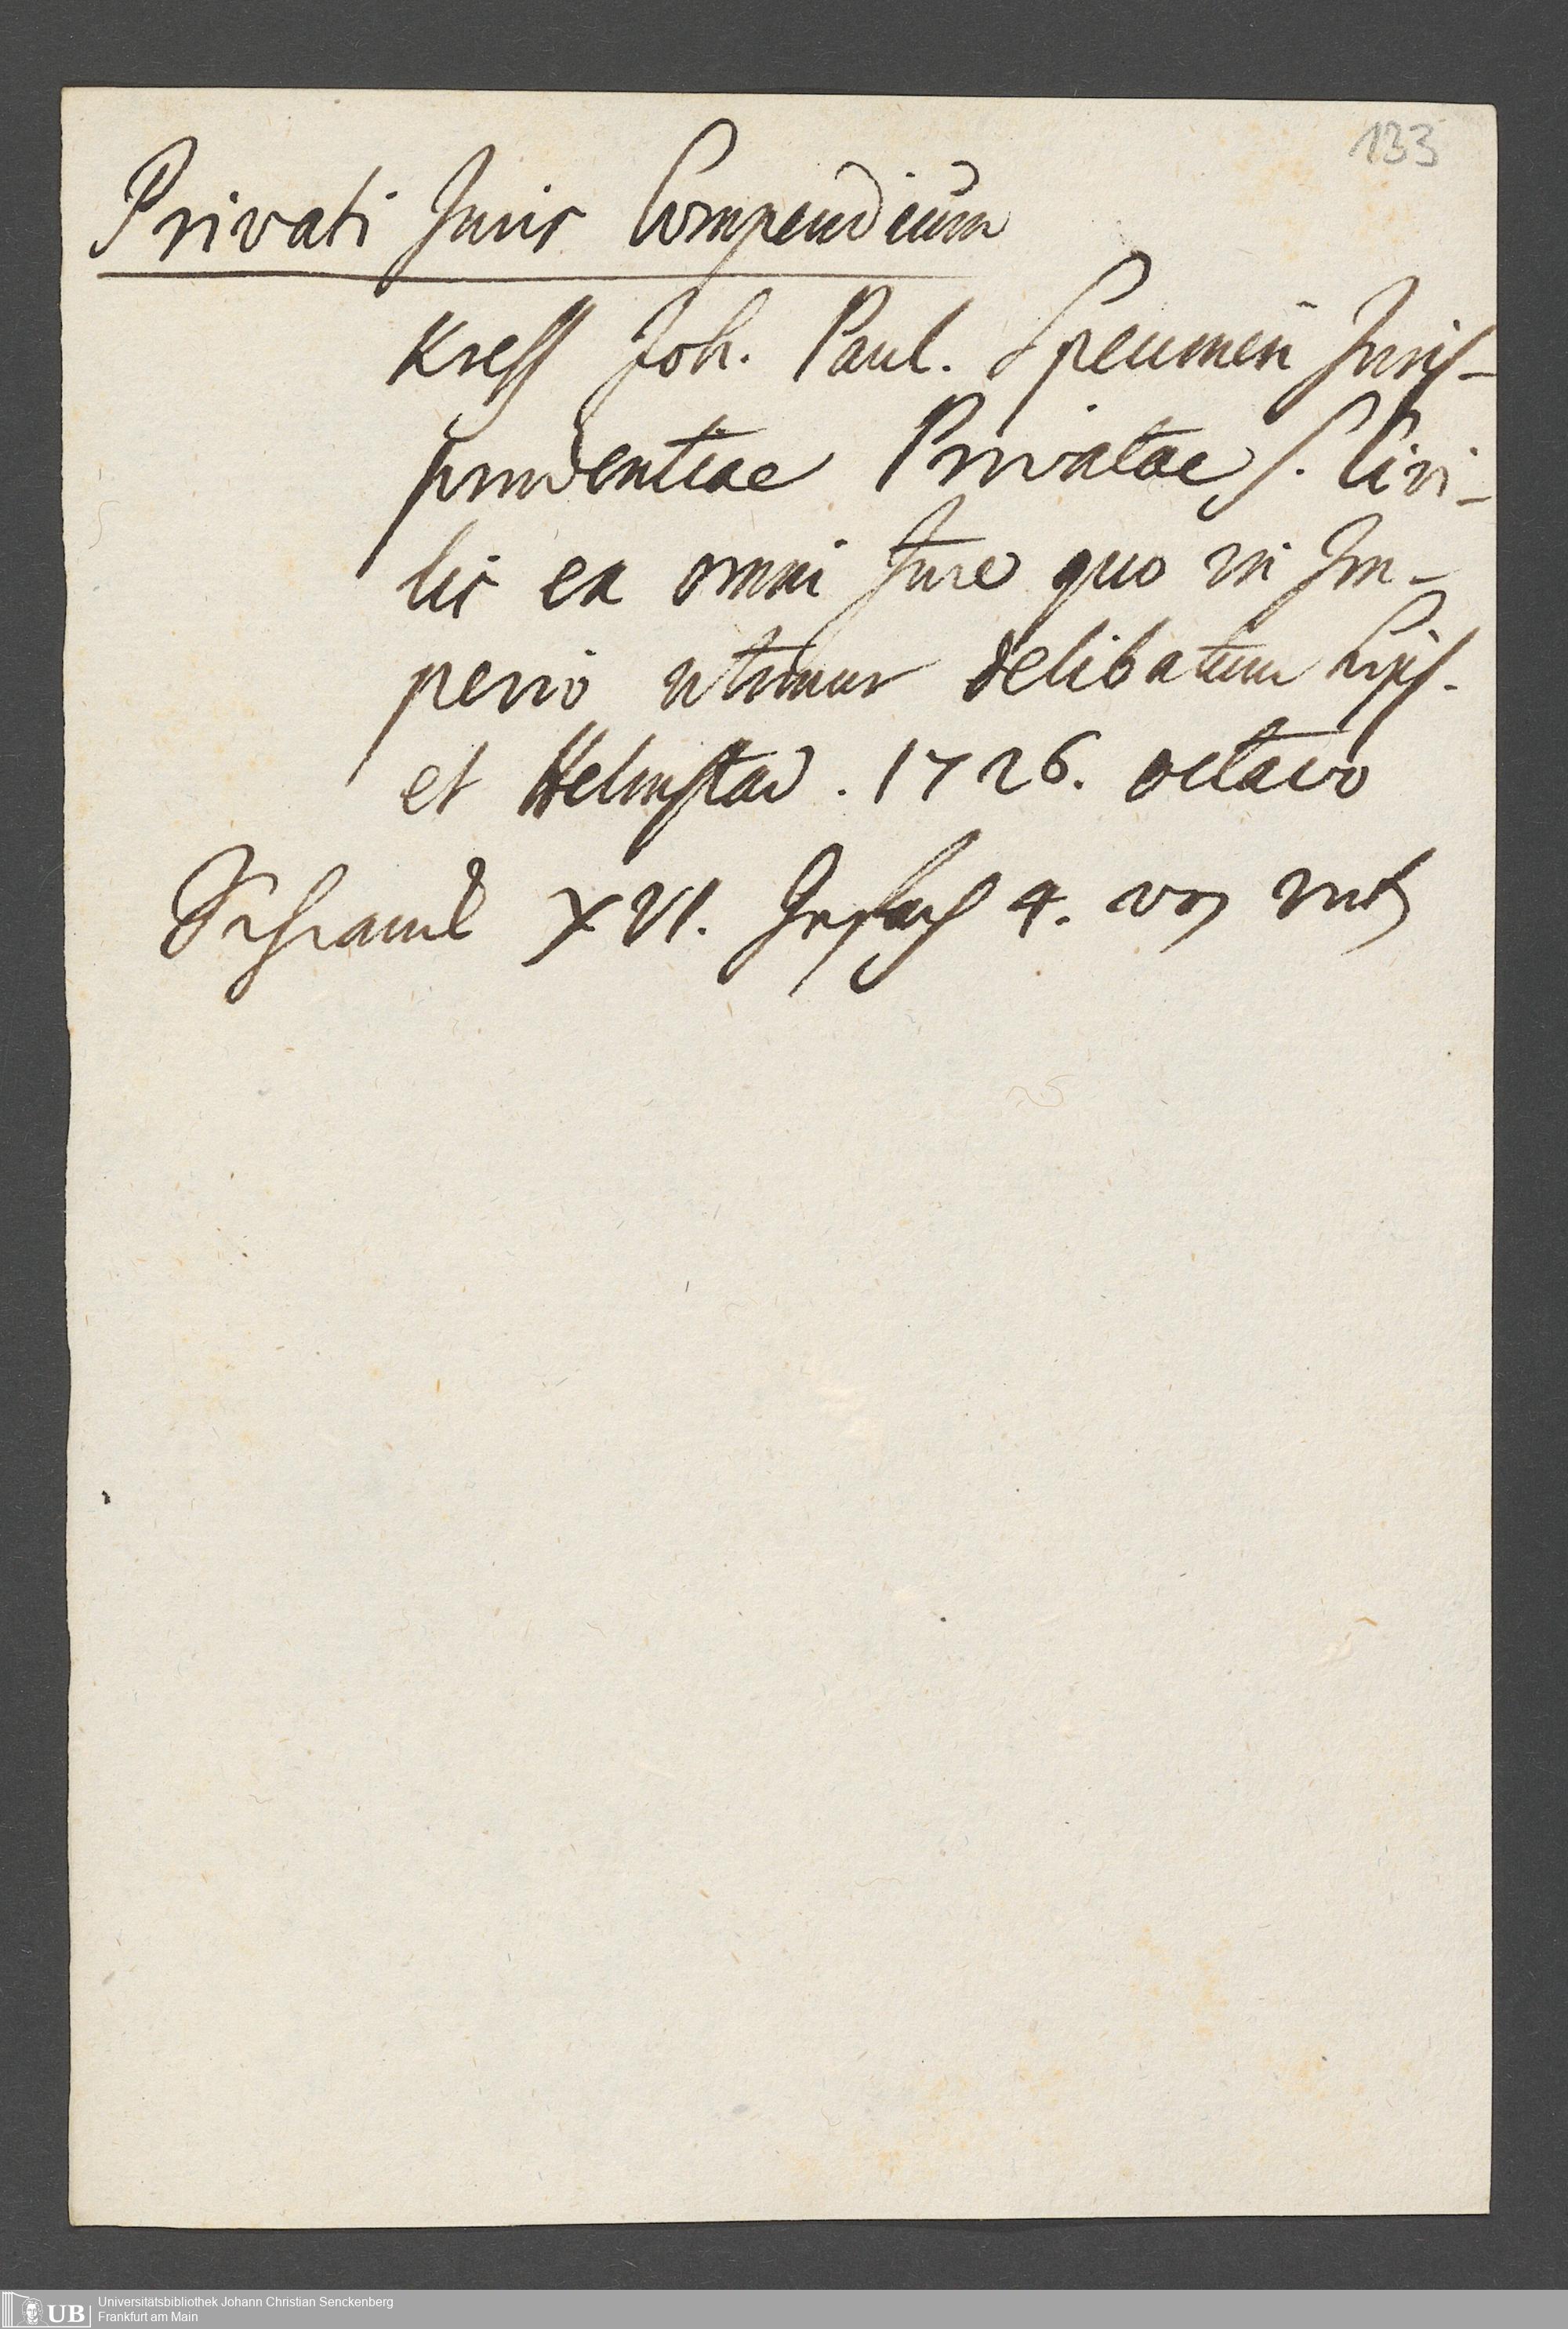 133
Privati Juris Compendium
Kress Joh. Paul. Specimen Juris-
prudentiae Privatae s. Civi-
lis ex omni Jure quo in Im-
perio utimur delibatum Lips.
et Helmstad. 1726. octavo
Schranck XVI. Gefach 4. von unten
UB Universitätsbibliothek Johann Christian Senckenberg
Frankfurt am Main